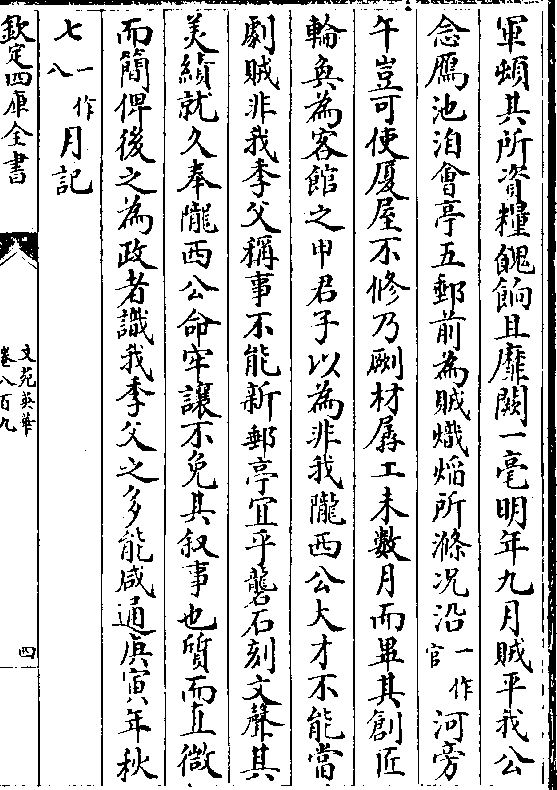 軍頓其所資糧餽餉且靡闕一毫明年九月賊平我公
念鴈池洎會亭五郵前為賊熾熖所滌况沿一作官河旁
午豈可使厦屋不修乃劂材孱工未數月而畢其創匠
輪奐為客館之甲君子以為非我隴西公大才不能當
劇賊非我季父稱事不能新郵亭宜乎礱石刻文聲其
美績就久奉隴西公命牢讓不免其叙事也質而直微
而簡俾後之為政者識我季父之多能咸通庚寅年秋
七一作八月記
欽定四庫全書
文苑英華
卷八百九
四